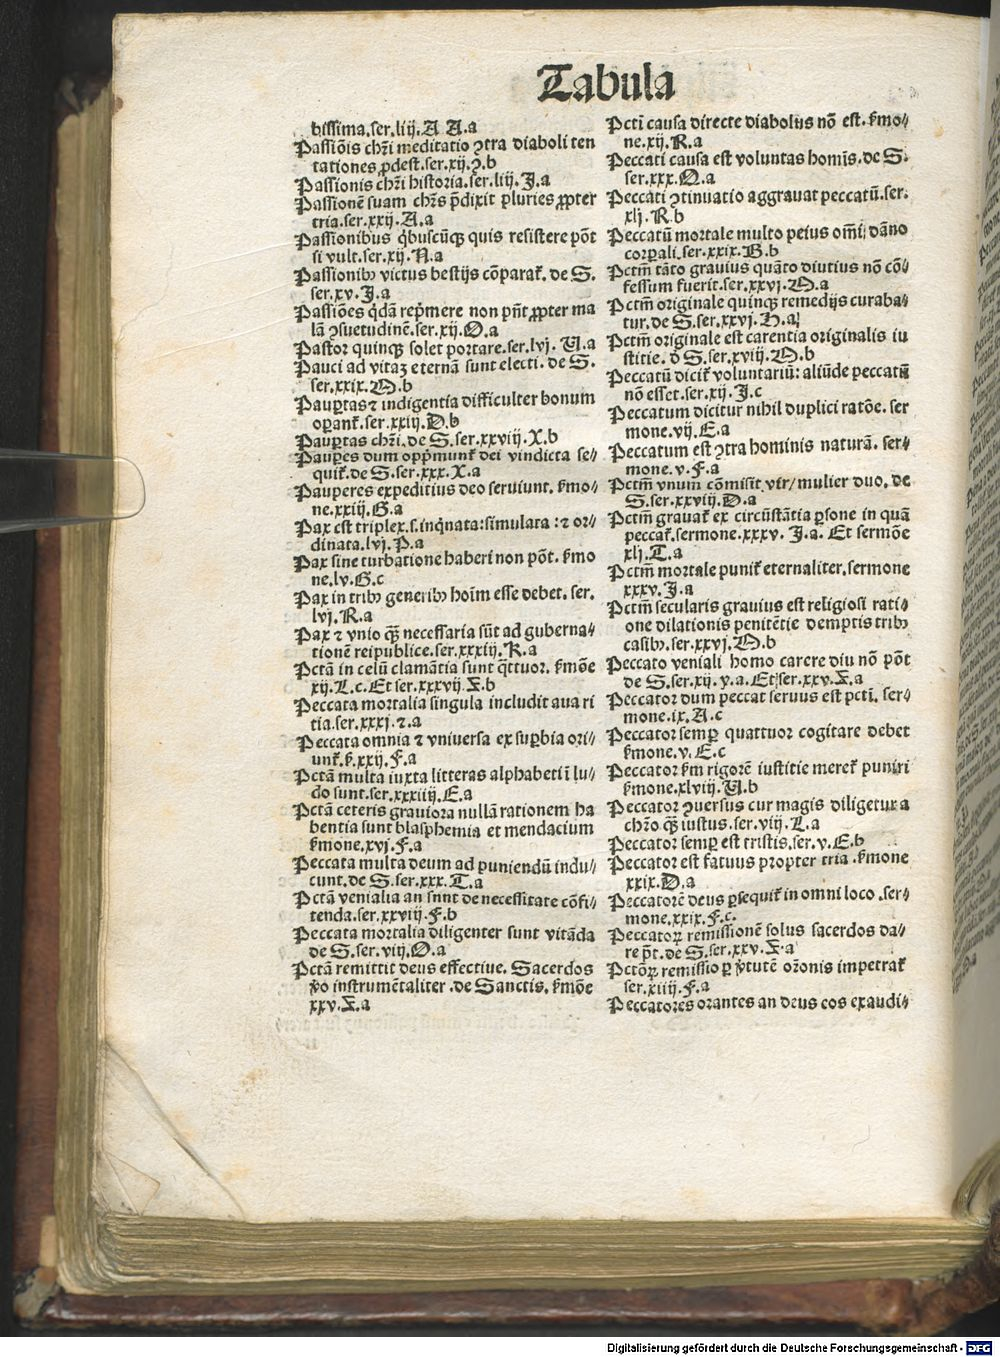 Tabula
bissima.ser.liij.A A.a
Passiõis chr̃i meditatio ꝯtra diaboli ten
tationes ꝓdest.ser.xij.ꝯ.b
Passionis chr̃i historia.ser.liij.J.a
Passionẽ suam chr̃s p̃dixit pluries ꝓpter
tria.ser.xxij.A.a
Passionibus q̇buscũqꝫ quis resistere põt
si vult.ser.xij.N.a
Passionibꝰ victus bestijs cõparat᷑. de S.
ser.xv.J.a
Passiões q̇dã rep̃mere non pñt ꝓpter ma
lã ꝯsuetudinẽ.ser.xij.O.a
Pastor quinqꝫ solet portare.ser.lvj. U.a
Pauci ad vitaꝫ eternã sunt electi. de S.
ser.xxix.M.b
Pauꝑtas ⁊ indigentia difficulter bonum
oꝑant᷑.ser.xxiij.D.b
Pauꝑtas chr̃i.de S.ser.xxviij.X.b
Pauꝑes dum opp̃munt᷑ dei vindicta se⸗
quit᷑.de S.ser.xxx.X.a
Pauperes expeditius deo seruiunt. ẞmo⸗
ne.xxiij.G.a
Pax est triplex.s.inq̇nata:simulata : ⁊ or⸗
dinata.lvj.P.a
Pax sine turbatione haberi non põt. ẞmo
ne.lv.G.c
Pax in tribꝰ generibꝰ hoĩm esse debet. ser.
lvj.R.a
Pax ⁊ vnio qꝫ̃ necessaria sũt ad guberna⸗
tionẽ reipublice.ser.xxxiij.K.a
Pctã in celũ clamãtia sunt q̃ttuor. ẞmõe
xij.L.c.Et ser.xxxvij.X.b
Peccata mortalia singula includit auari
tia.ser.xxxj.⁊.a
Peccata omnia ⁊ vniuersa ex suꝑbia ori⸗
unt᷑.ẞ.xxij.F.a
Pctã multa iuxta litteras alphabeti ĩ lu⸗
do sunt.ser.xxxiiij.E.a
Pctã ceteris grauiora nullã rationem ha
bentia sunt blasphemia et mendacium
ẞmone.xvj.F.a
Peccata multa deum ad puniendũ indu⸗
cunt.de S.ser.xxx.T.a
Pctã venialia an snnt de necessitate cõfi⸗
tenda.ser.xxviij.F.b
Peccata mortalia diligenter sunt vitãda
de S.ser.viij.O.a
Pctã remittit deus effectiue. Sacerdos
ꝟo instrumẽtaliter .de Sanctis. ẞmõe
xxv.X.a
Pctĩ causa directe diabolus nõ est. ẞmo⸗
ne.xij.R.a
Peccati causa est voluntas homĩs.de S.
ser.xxx.Q.a
Peccati ꝯtinuatio aggrauat peccatũ.ser.
xlj.R.b
Peccatũ mortale multo peius om̃i dãno
corꝑali.ser.xxix.B.b
Pctm̃ tãto grauius quãto diutius nõ cõ⸗
fessum fuerit.ser.xxvj.M.a
Pctm̃ originale quinqꝫ remedijs curaba⸗
tur.de S.ser.xxvj.H.a
Pctm̃ originale est carentia originalis iu
stitie. d̓ S.ser.xviij.M.b
Peccatũ dicit᷑ voluntariũ: aliũde peccatũ
nõ esset.ser.xij.J.c
Peccatum dicitur nihil duplici ratõe. ser
mone.vij.E.a
Peccatum est ꝯtra hominis naturã. ser⸗
mone.v.F.a
Pctm̃ vnum cõmisit vir/mulier duo. de
S.ser.xxviij.D.a
Pctm̃ grauat᷑ ex circũstãtia ꝑsone in quã
peccat᷑.sermone.xxxv. J.a. Et sermõe
xlj.T.a
Pctm̃ mortale punit᷑ eternaliter.sermone
xxxv.J.a
Pctm̃ secularis grauius est religiosi rati⸗
one dilationis penitẽtie demptis tribꝰ
casibꝰ.ser.xxvj.M.b
Peccato veniali homo carere diu nõ põt
de S.ser.xij.y.a.Et ser.xxv.X.a
Peccator dum peccat seruus est pctĩ. ser⸗
mone.ix.A.c
Peccator semꝑ quattuor cogitare debet
ẞmone.v.E.c
Peccator ẞm rigorẽ iustitie meret᷑ puniri
ẞmone.xlviij.U.b
Peccator ꝯuersus cur magis diligetur a
chrõ qꝫ̃ iustus.ser.viij.L.a
Peccator semꝑ est tristis.ser.v.E.b
Peccator est fatuus propter tria .ẞmone
xxix.D.a
Peccatorẽ deus ꝑsequit᷑ in omni loco .ser⸗
mone.xxix.F.c.
Peccatoꝝ remissionẽ solus sacerdos da⸗
re põt.de S.ser.xxv.X.a
Pctõꝝ remissio ꝑ ꝟtutẽ orõnis impetrat᷑
ser.xiiij.F.a
Peccatores orantes an deus eos exaudi⸗
Digitalisierung gefördert durch die Deutsche Forschungsgemeinschaft - DFG